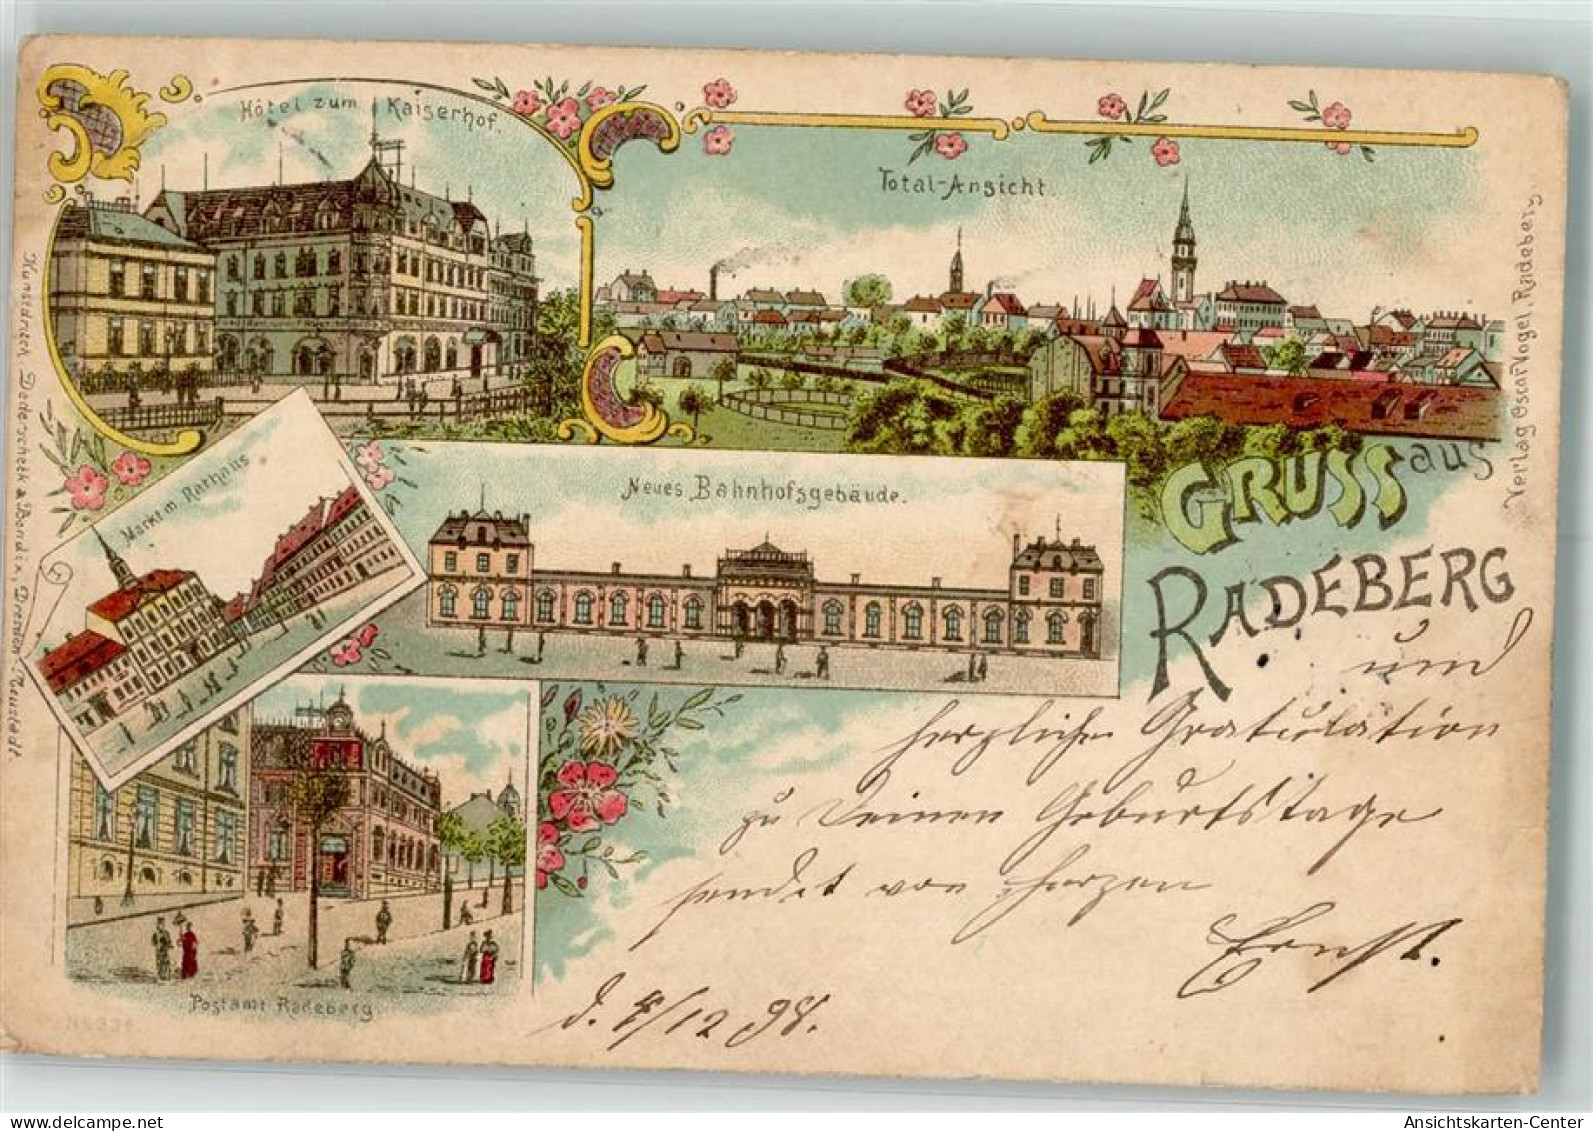 Hôtel zum Kaiserhof.
Total-Ansicht.
Markt m. Rathaus
Neues Bahnhofsgebäude.
GRUSS aus
RADEBERG
Postamt Radeberg
Verlag Oscar Vogel, Radeberg
Kunstdruck Dederscheck & Bondix, Dresden-Neustadt.
und
herzliche Gratulation
zu Deinem Geburtstage
sendet von Herzen
Ernst.
d. /12 98.
AnsichtsKarten-Center